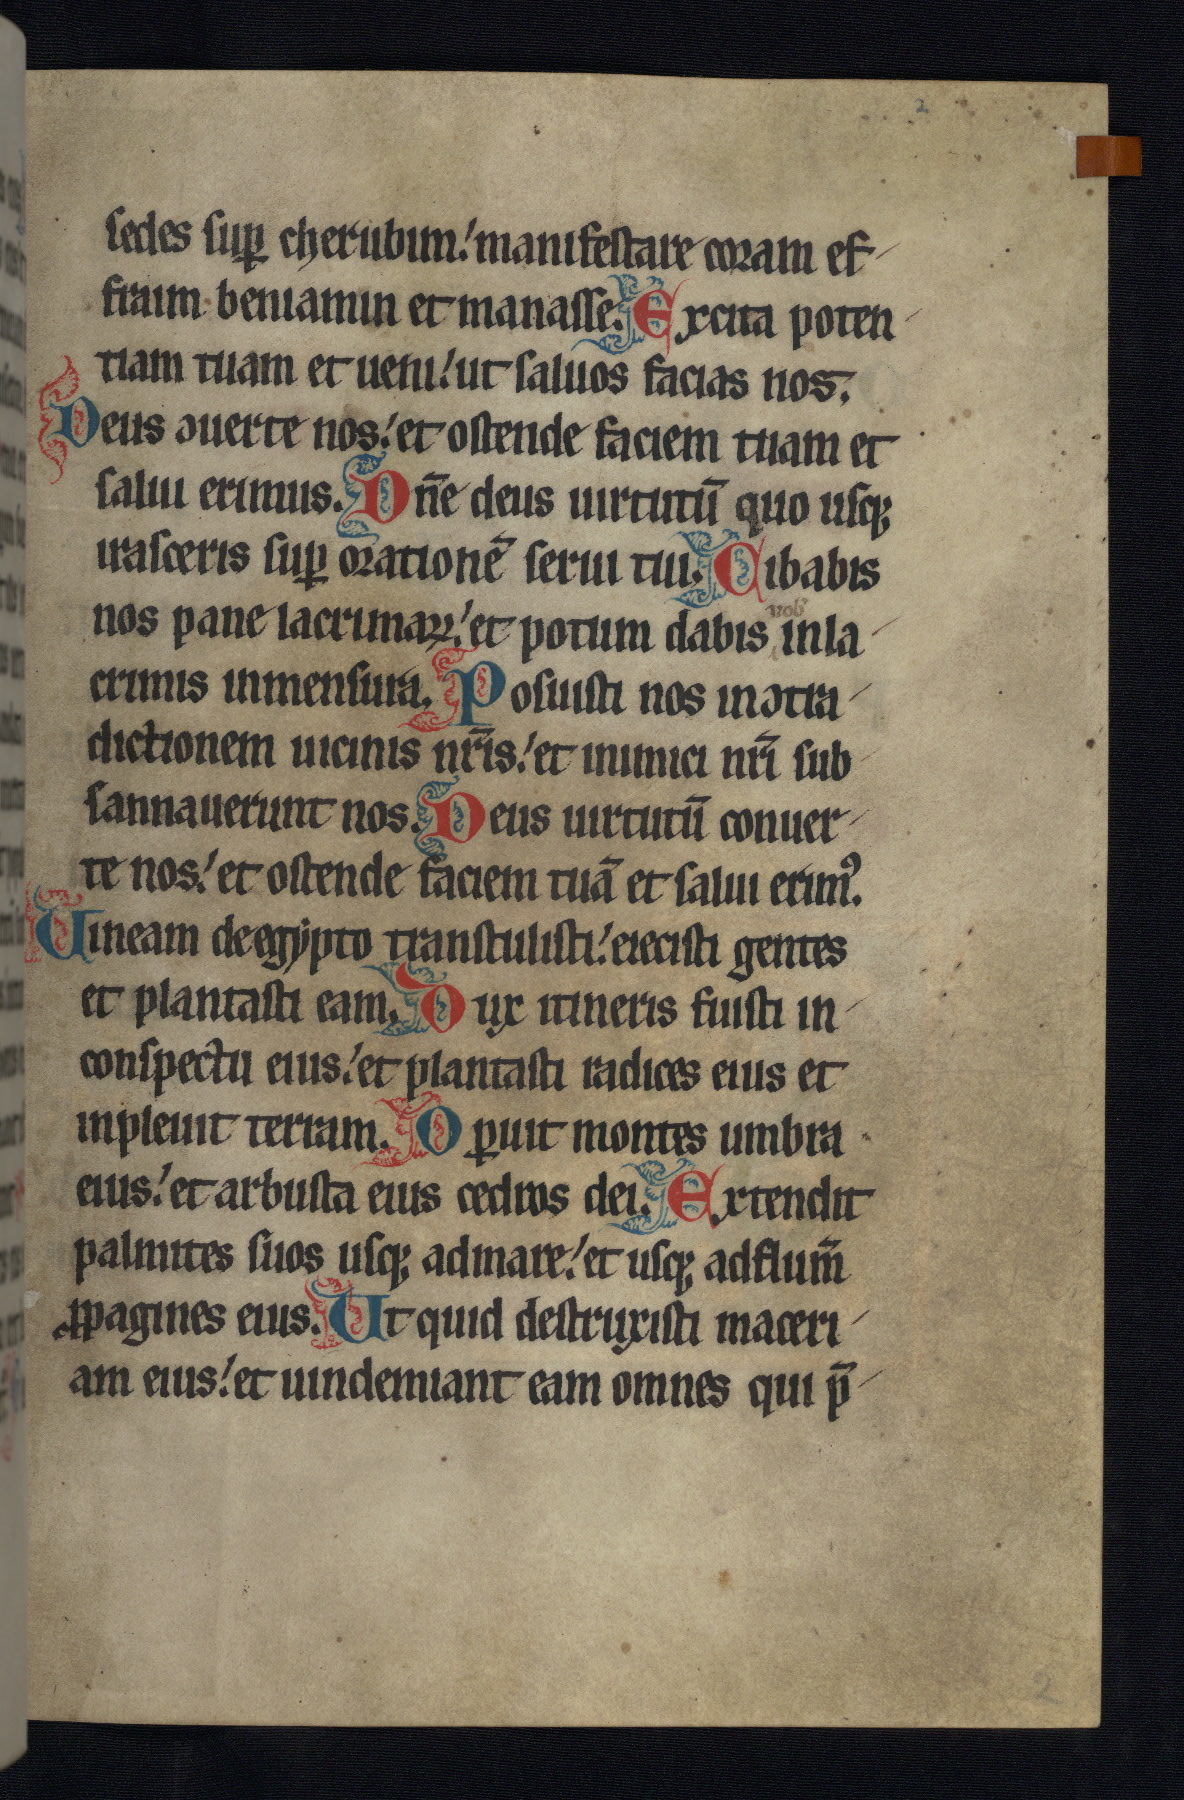 2
sedes suꝑ cherubim: manifestare coram ef-
fraim beniamin et manasse. Excita poten-
tiam tuam et ueni: ut saluos facias nos.
Deus ꝯuerte nos: et ostende faciem tuam et
salui erimus. Dn̄e deus uirtutū quo usqꝫ
irasceris suꝑ orationē serui tui. Cibabis
nos pane lacrimaꝝ: et potum dabis nob̄ in la-
crimis in mensura. Posuisti nos in ꝯtra-
dictionem uicinis nr̄is: et inimici nr̄i sub-
sannauerunt nos. Deus uirtutū conuer-
te nos: et ostende faciem tuā et salui erimꝰ.
Uineam de egypto transtulisti: eiecisti gentes
et plantasti eam. Dux itineris fuisti in-
conspectu eius: et plantasti radices eius et
inpleuit terram. Oꝑuit montes umbra
eius: et arbusta eius cedros dei. Extendit
palmites suos usqꝫ ad mare: et usqꝫ ad flum̄
ꝓpagines eius. Ut quid destruxisti maceri-
am eius: et uindemiant eam omnes qui p̄-
2